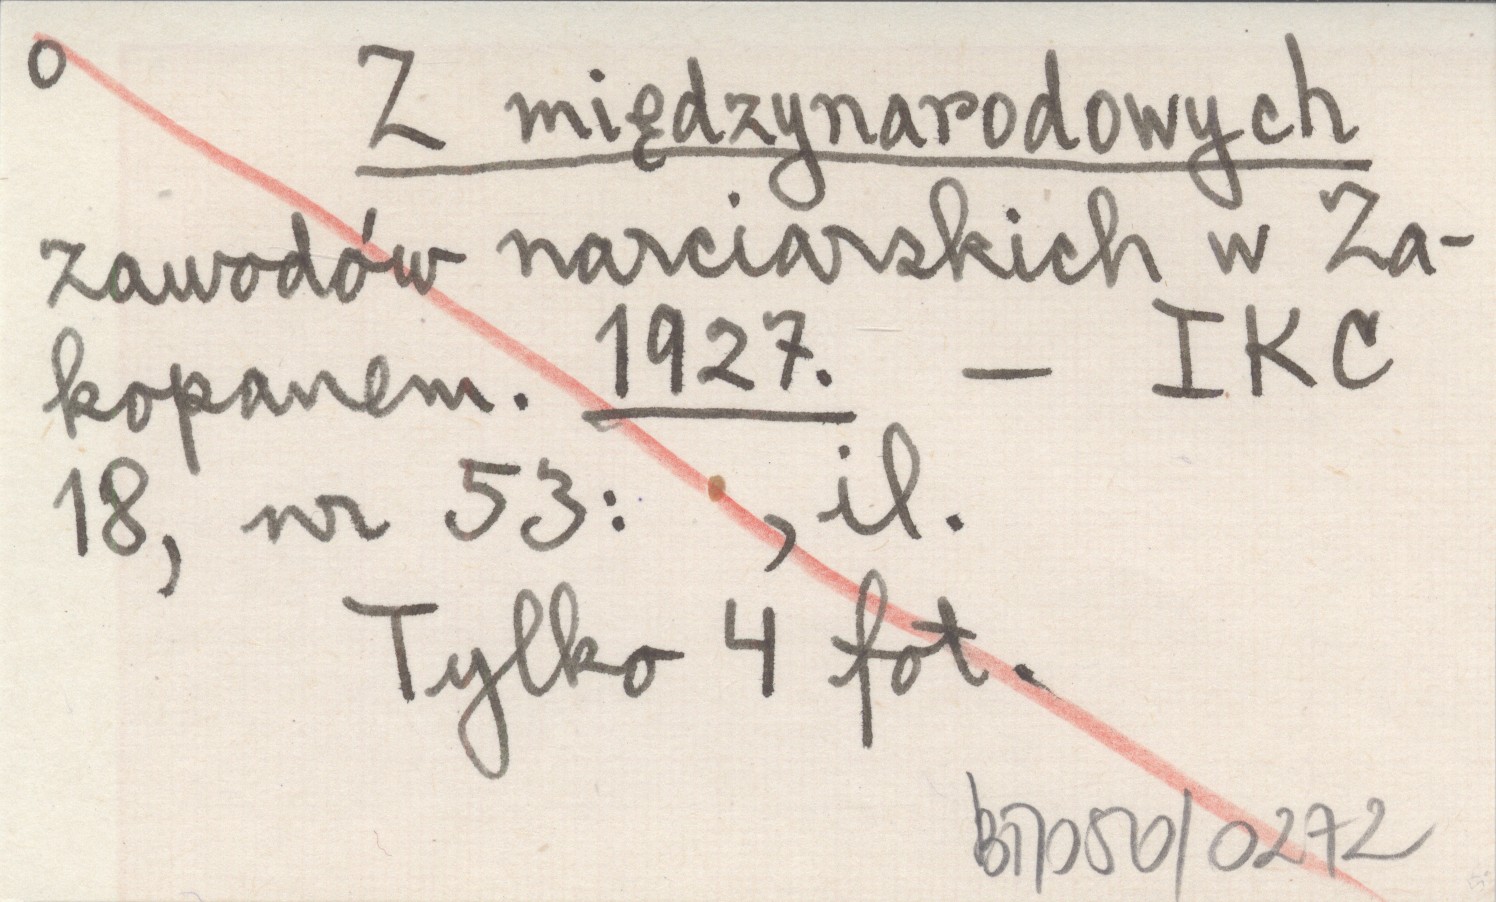 o Z międzynarodowych
zawodów narciarskich w Za-
kopanem. 1927. — IKC
18, nr 53: , il.
Tylko 4 fot.
0272